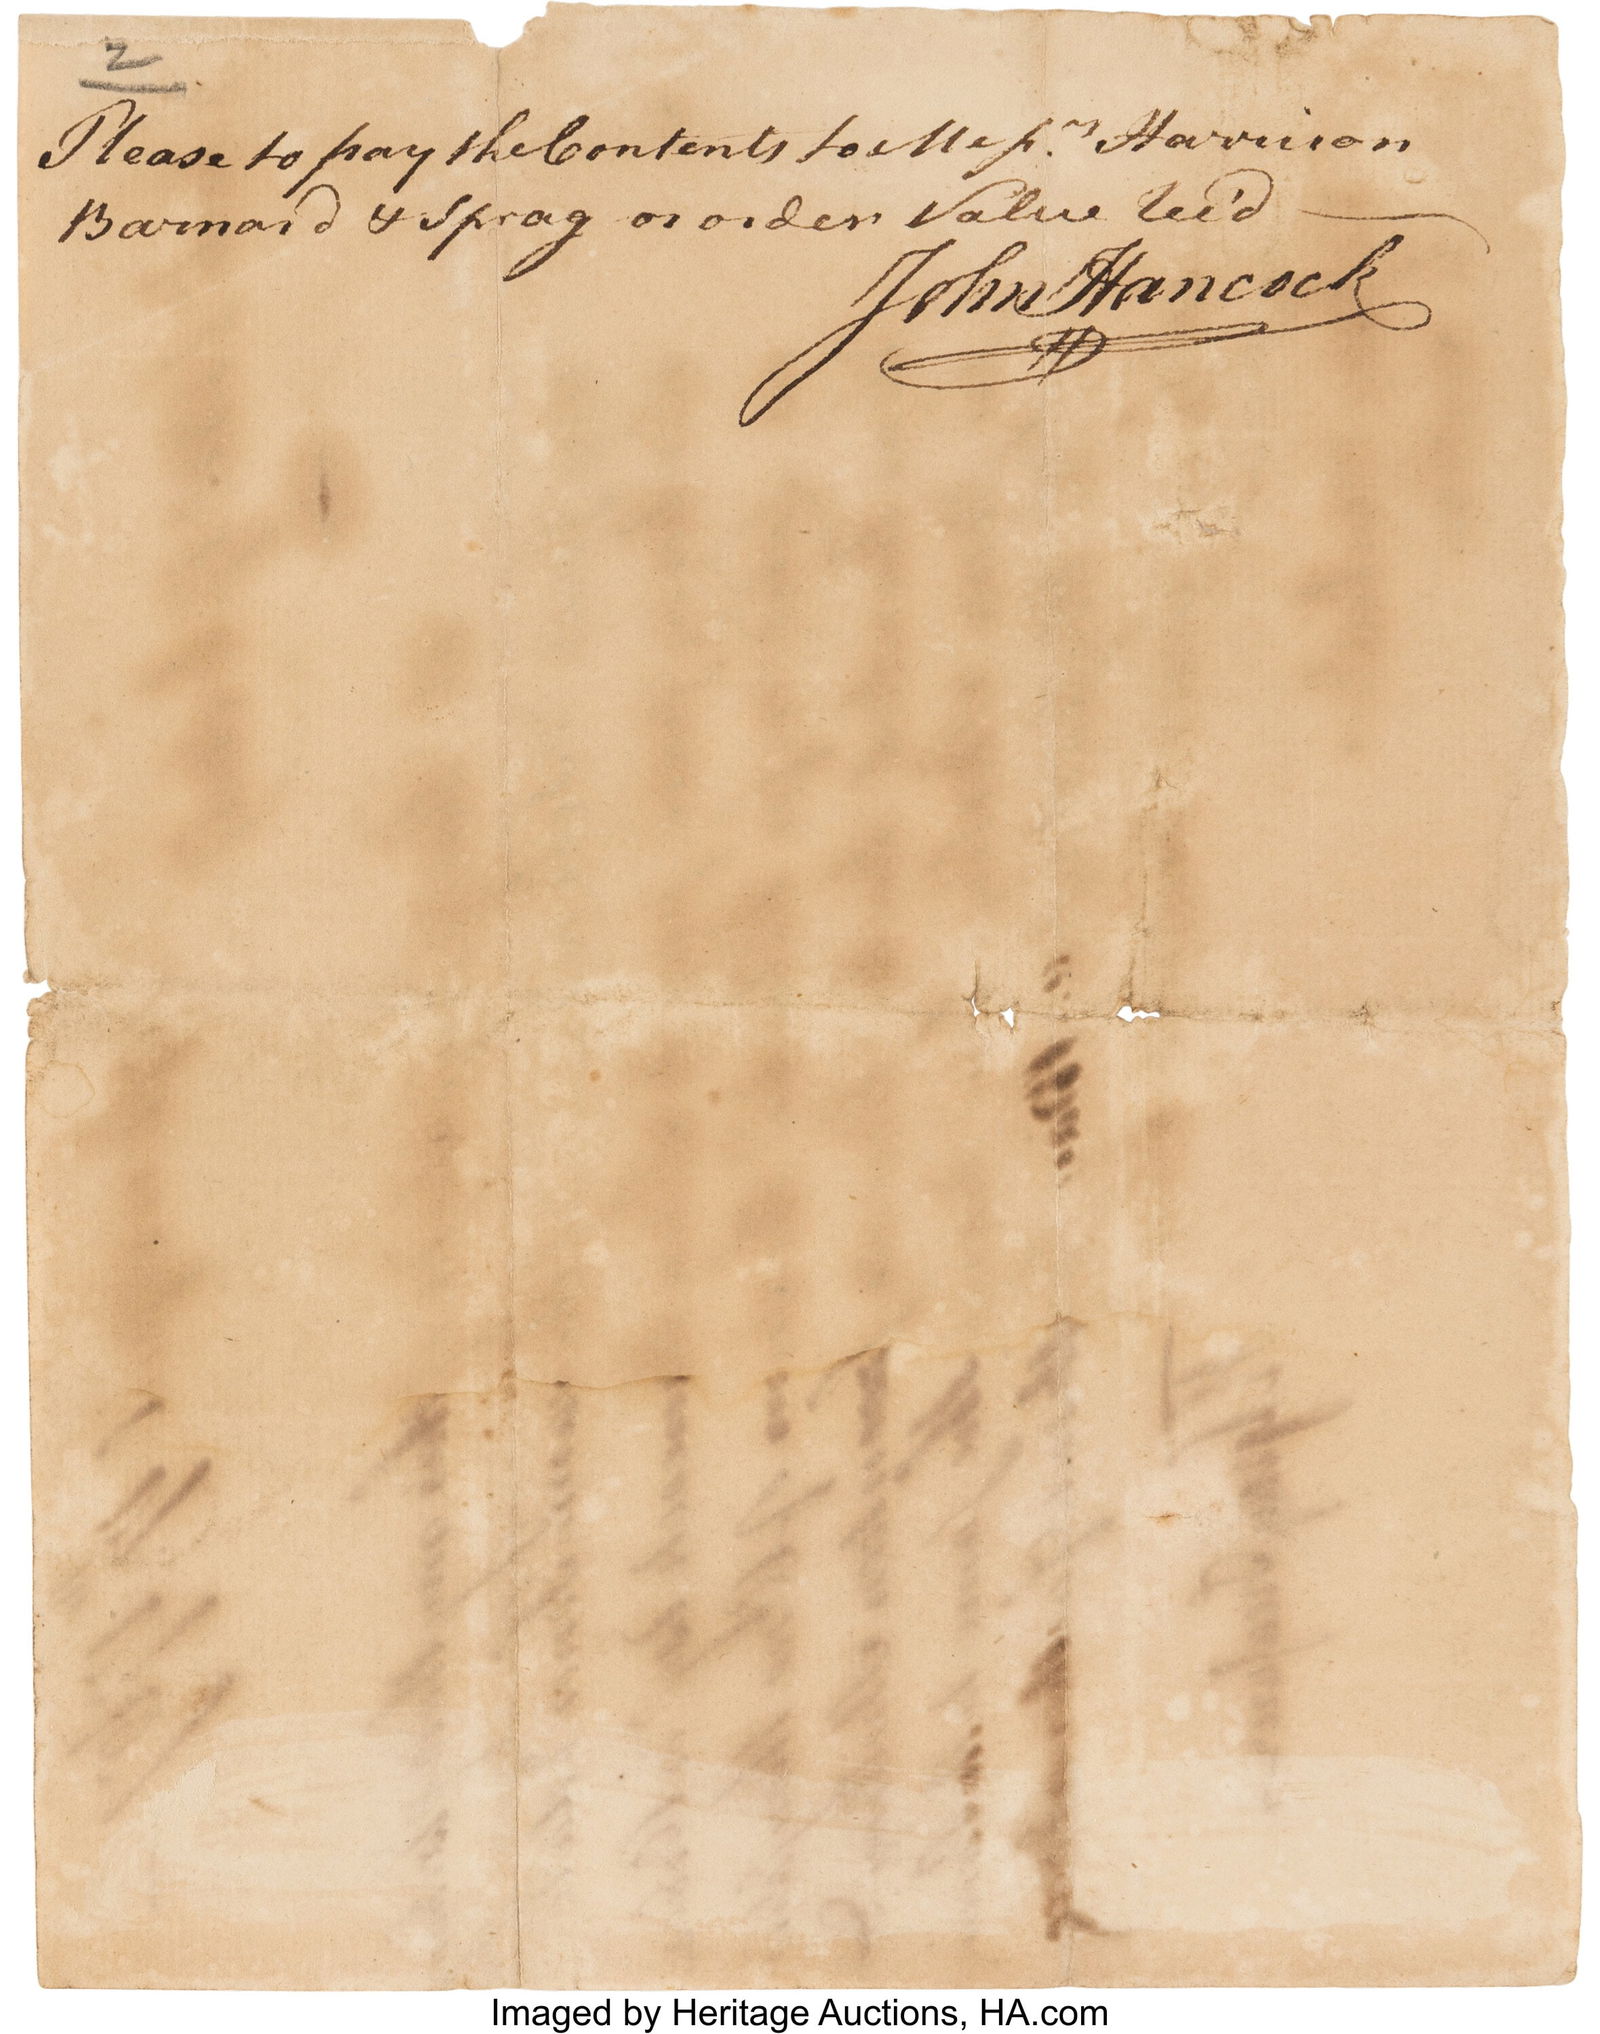 2
Please to pay the Contents to Mess.rs Harrison
Barnard & Sprag or order Value Rec'd
John Hancock
Imaged by Heritage Auctions, HA.com